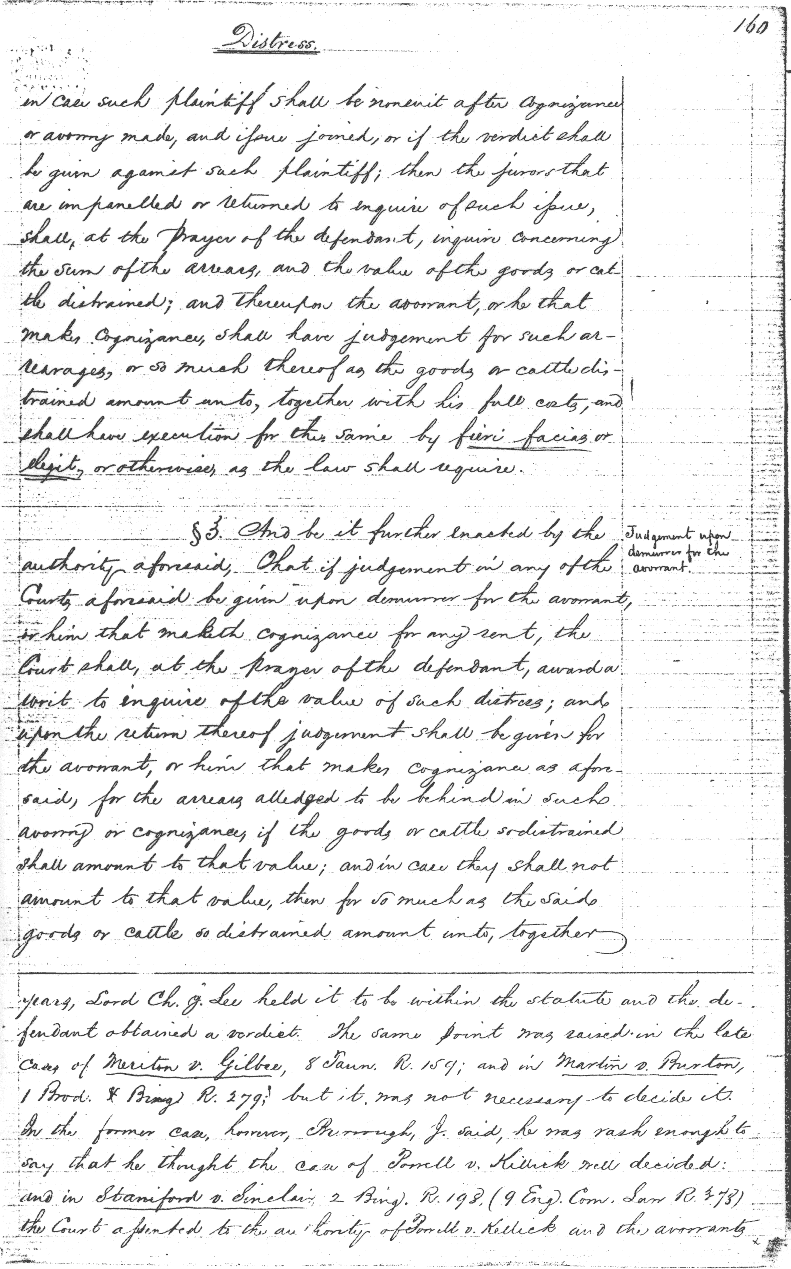 160
Distress.
in case such plaintiff shall be nonsuit after cognizance
or avowry made, and issue joined, or if the verdict shall
be given against such plaintiff; then the jurors that
are impanelled or returned to enquire of such issue,
shall, at the prayer of the defendant, inquire concerning
the sum of the arrears, and the value of the goods or cat-
tle distrained; and thereupon the avowant, or he that
makes cognizance, shall have judgement for such ar-
rearages, or so much thereof as the goods or cattle dis-
trained amount unto, together with his full costs, and
shall have execution for the same by fieri facias or
elegit, or otherwise, as the law shall require.
§3. And be it further enacted by the
authority aforesaid, That if judgement in any of the
Courts aforesaid be given upon demurrer for the avowant,
or him that maketh cognizance for any rent, the
Court shall, at the prayer of the defendant, award a
writ to enquire of the value of such distress; and
upon the return thereof judgement shall be given for
the avowant, or him that makes cognizance as afore-
said, for the arrears alledged to be behind in such
avowry or cognizance, if the goods or cattle so distrained
shall amount to that value; and in case they shall not
amount to that value, then for so much as the said
goods or cattle so distrained amount unto, together
Judgement upon
demurrer for the
avowant.
years, Lord Ch. J. Lee held it to be within the statute and the de-
fendant obtained a verdict. The same point was raised in the late
cases of Meriton v. Gilbee, 8 Taun. R. 159; and in Martin v. Burton,
1 Brod. & Bing R. 279; but it was not necessary to decide it.
In the former case, however, Burrough, J. said, he was rash enough to
say that he thought the case of Powell v. Killick well decided:
and in Staniford v. Sinclair, 2 Bing. R. 193. (9 Eng. Com. Law R. 373)
the Court assented to the authority of Powell v. Killick and the avowants